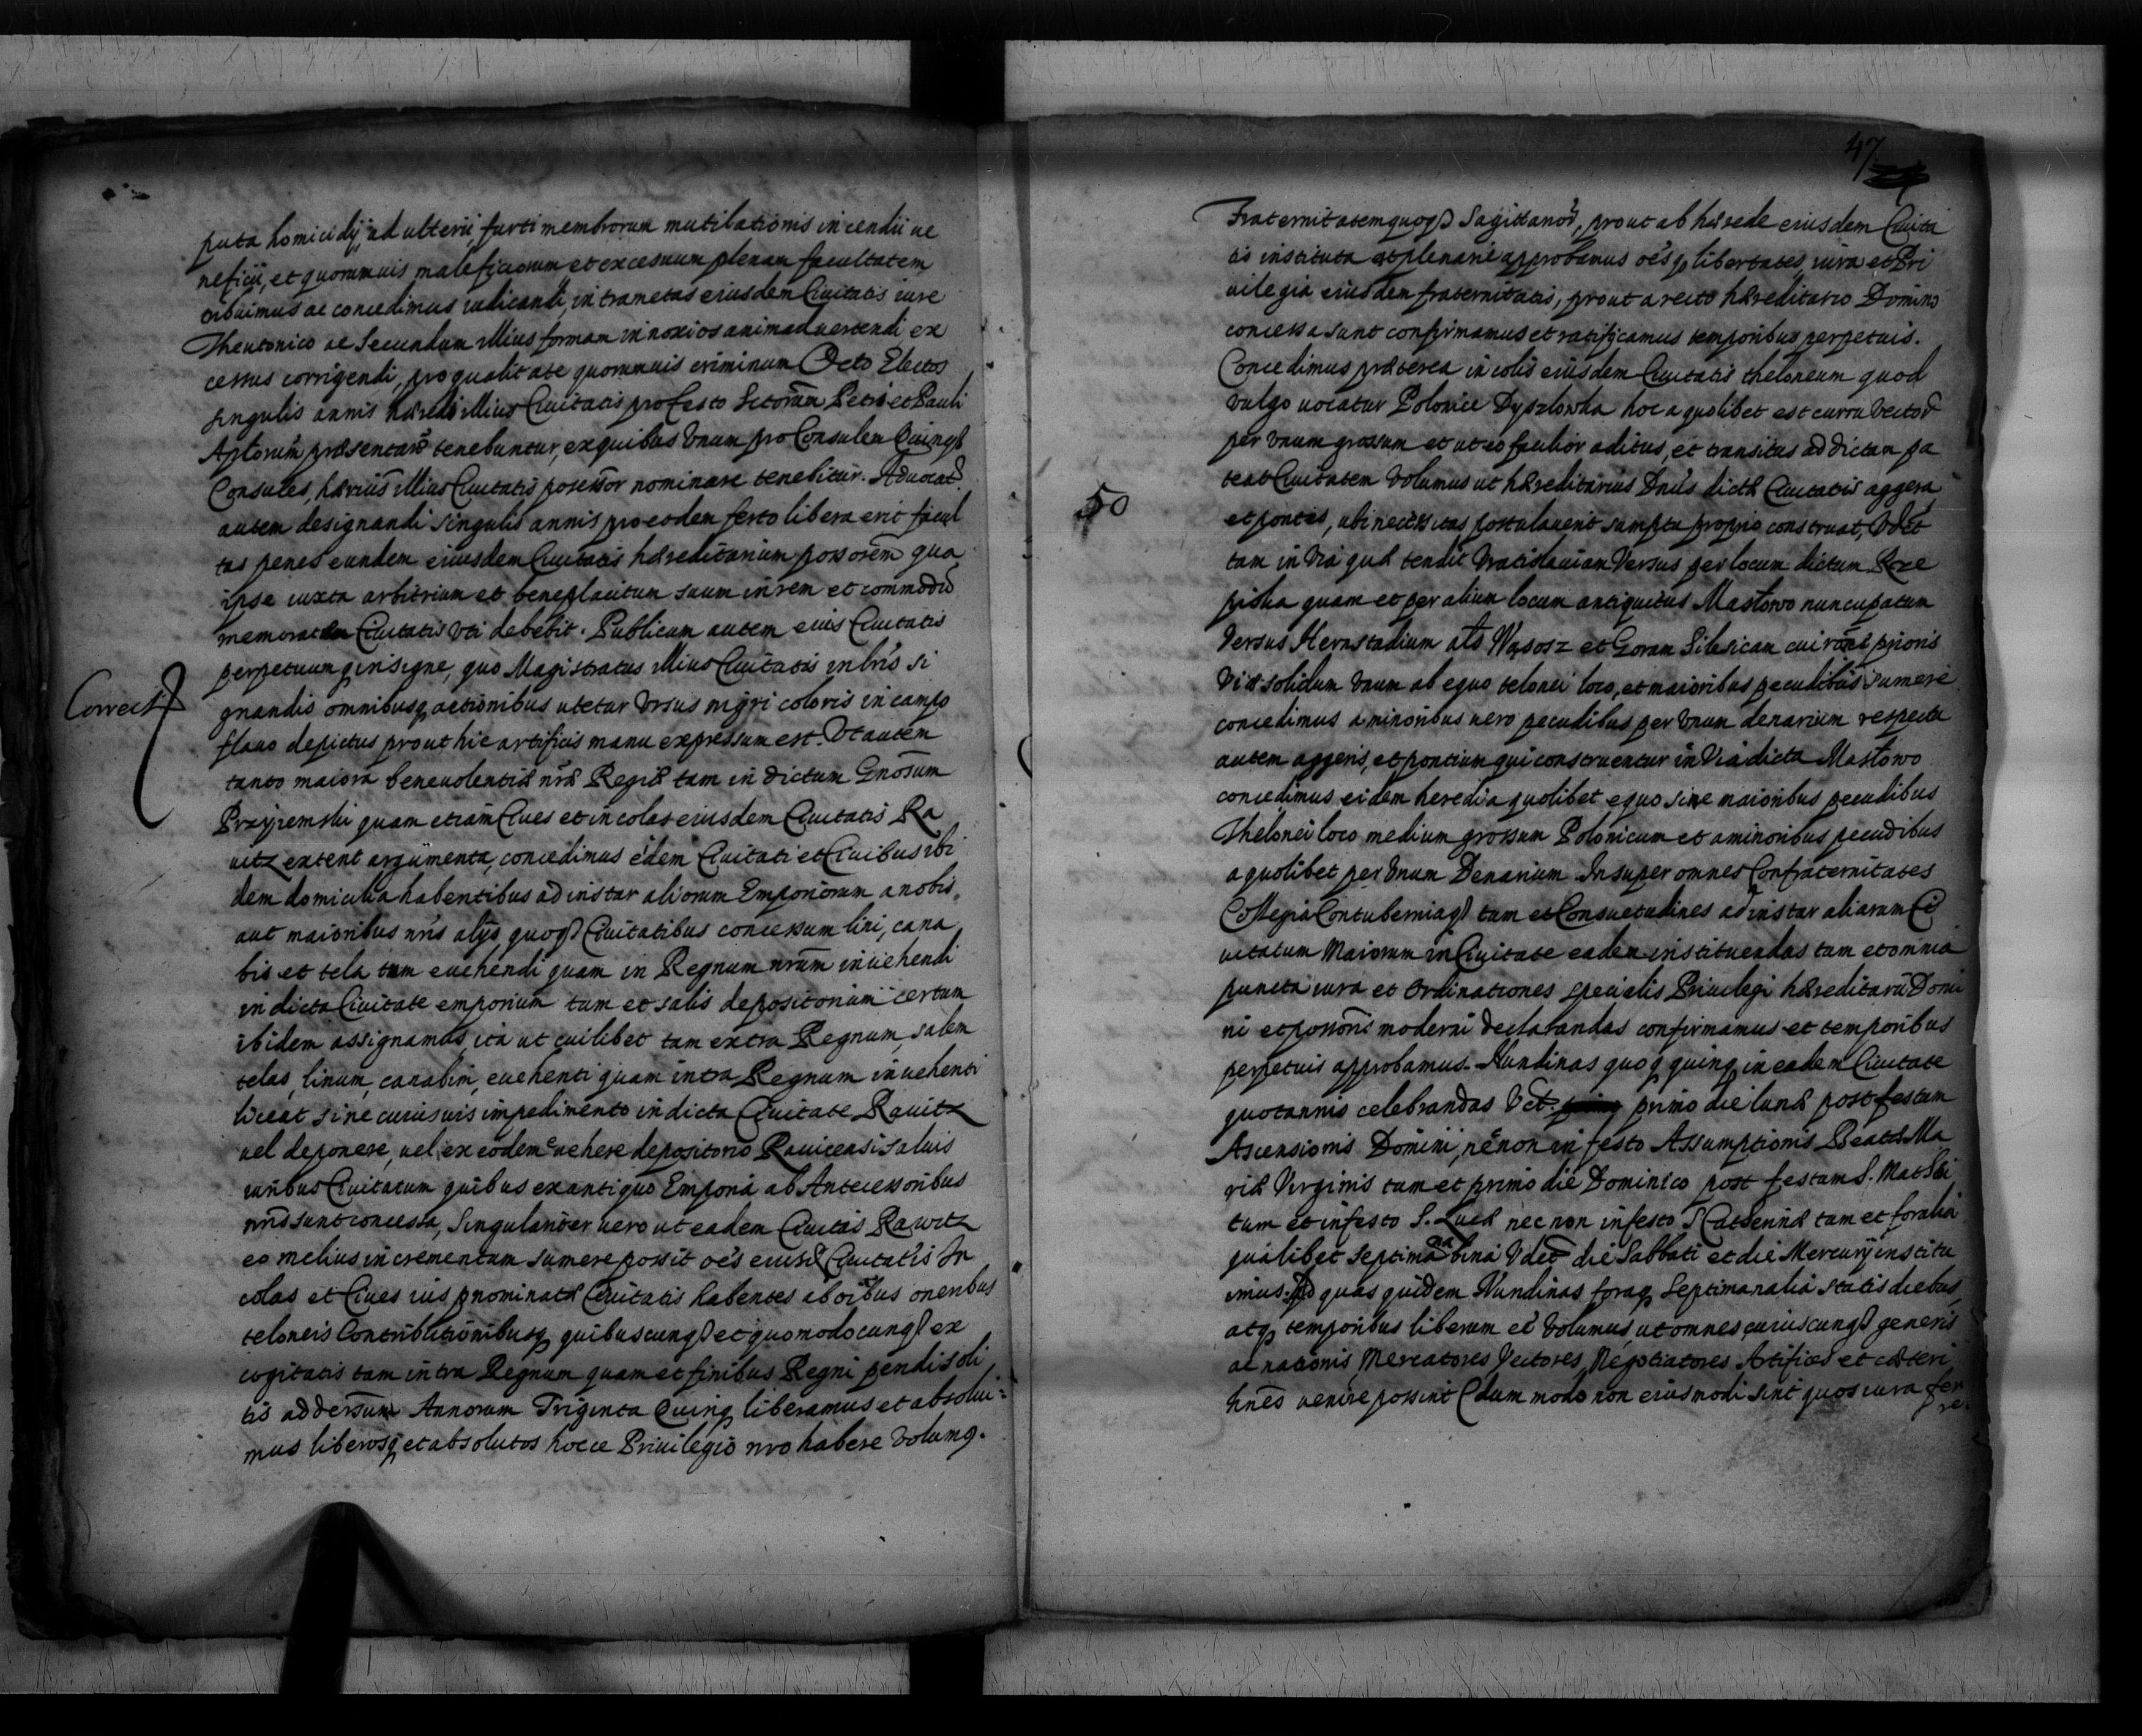 puta homicidij, adulterii, furti membrorum mutilationis incendii ve
neficii, et quorumuis maleficiorum et excesuum plenam facultatem
tribuimus ac concedimus iudicandi, intra metas eiusdem Ciuitatis iure
Theutonico ac secundum illius formam in noxios animaduertendi ex
cessus corrigendi, pro qualitate quorumuis criminum Octo Electos
singulis annis hæredi illius Ciuitatis pro festo Sctorum Petri et Pauli
Aptorum præsentare tenebuntur, ex quibus Vnum pro Consulem Quinqȝ
Consules, illius Ciuitatis posessor nominare tenebitur. Aduocat
autem designandi singulis annis pro eodem festo libera erit facul
tas penes eundem eiusdem Ciuitatis hæreditarium possorem qua
ipse iuxta arbitrium et beneplacitum suum in rem et commodū
memoratæ Ciuitatis vti debebit. Publicum autem eius Ciuitatis
perpetuumq insigne, quo Magistratus illius Ciuitatis in lris si
Correct
gnandis omnibusq actionibus utetur Vrsus nigri coloris in campo
flauo depictus prout hic artificis manu expressum est. Vt autem
tanto maiora beneuolentiæ nræ Regiæ tam in dictum Gnosum
Przyiemski quam etiam Ciues et incolas eiusdem Ciuitatis Ra
uitz extent argumenta, concedimus eidem Ciuitati et Ciuibus ibi
dem domicilia habentibus ad instar aliorum Emporiorum a nobis,
aut maioribus nris alijs quoqȝ Ciuitatibus concessum lini, cana
bis et tela tam euehendi quam in Regnum nrum inuehendi
in dicta Ciuitate emporium tum et salis depositorium certum
ibidem assignamus, ita ut cuilibet tam extra Regnum, salem
telas, linum, canabim, euehenti quam intra Regnum inuehenti
liceat sine cuiusuis impedimento in dicta Ciuitate Rauitz
uel deponere, uel ex eodem euehere depositorio Rauicensi saluis
iuribus Ciuitatum quibus ex antiquo Emporia ab Antecessoribus
nris sunt concessa, Singulariter uero ut eadem Ciuitas Rawitz
eo melius in crementum sumere possit oes eiusd Ciuitatis In
colas et Ciues ius pnominatæ Ciuitatis habentes ab oibus oneribus
teloneis Contributionibusq quibuscunqȝ et quomodocunqȝ ex
cogitatis tam intra Regnum quam et finibus Regni pendi soli
tis ad dersum Annorum Triginta Quinq liberamus et absolui=
mus liberosq et absolutos hocce Priuilegio nro habere Volumꝯ.
47
Fraternitatemquoqȝ Sagittanor, prout ab hærede eiusdem Ciuita
tis instituta est plenarie approbamus oesq libertates, iura et Pri
uilegia eiusdem fraternitatis, prout a recto hæreditario Domino
concessa sunt confirmamus et ratificamus temporibus perpetuis.
Concedimus præterea incolis eiusdem Ciuitatis theloneum quod
vulgo uocatur Polonice Dyszlowka hoc a quolibet est curru Vector
per Vnum grossum et ut eo facilior aditus, et transitus ad dictam pa
teat Ciuitatem Volumus ut hæreditarius Dnus dictæ Ciuitatis aggera
50
et pontes, ubi necessitas postulauerit sumptu proprio construat, Vdlt
tam in Via quæ tendit Vratislauiam Versus per locum dictum Rze
piska quam et per alium locum antiquitus Masłowo nuncupatum
Versus Hernstadium als Wąsosz et Goram Silesicam cui raõe prioris
Viæ solidum Vnum ab equo telonei loco, et maioribus pecudibus sumere
concedimus a minoribus uero pecudibus per Vnum denarium respectu
autem aggeris, et pontium qui construentur in Via dicta Masłowo
concedimus eidem heredi a quolibet equo siue maioribus pecudibus
Thelonei loco medium grossum Polonicum et a minoribus pecudibus
a quolibet per Vnum Denarium. Insuper omnes Confraternitates
Collegia Contuberniaqȝ tum et Consuetudines ad instar aliarum Ci
uitatum Maiorum in Ciuitate eadem instituendas tam et omnia
puncta iura et Ordinationes specialis Priuilegi hæreditarii Domi
ni et possoris moderni declarandas confirmamus et temporibus
perpetuis approbamus. Nundinas quoq quinq in eadem Ciuitate
quotannis celebrandas Vct. primo die lunæ post festum
Ascensionis Domini, necnon in festo Assumptionis Beatæ Ma
riæ Virginis tum et primo die Dominico post festum S. Matthi
tum et in festo S. Lucæ nec non in festo S Catherinæ tum et foralia
qualibet septimana bina Vdlt die Sabbati et die Mercurij institu
imus. Ad quas quidem Nundinas foraq Septimanalia statis diebus
atq temporibus liberum eē Volumus ut omnes cuiuscunqȝ generis
ac nationis Mercatores Vectores, Negotiatores Artifices et cæteri
hnes uenire possint (dum modo non eiusmodi sint quos iura fer
re